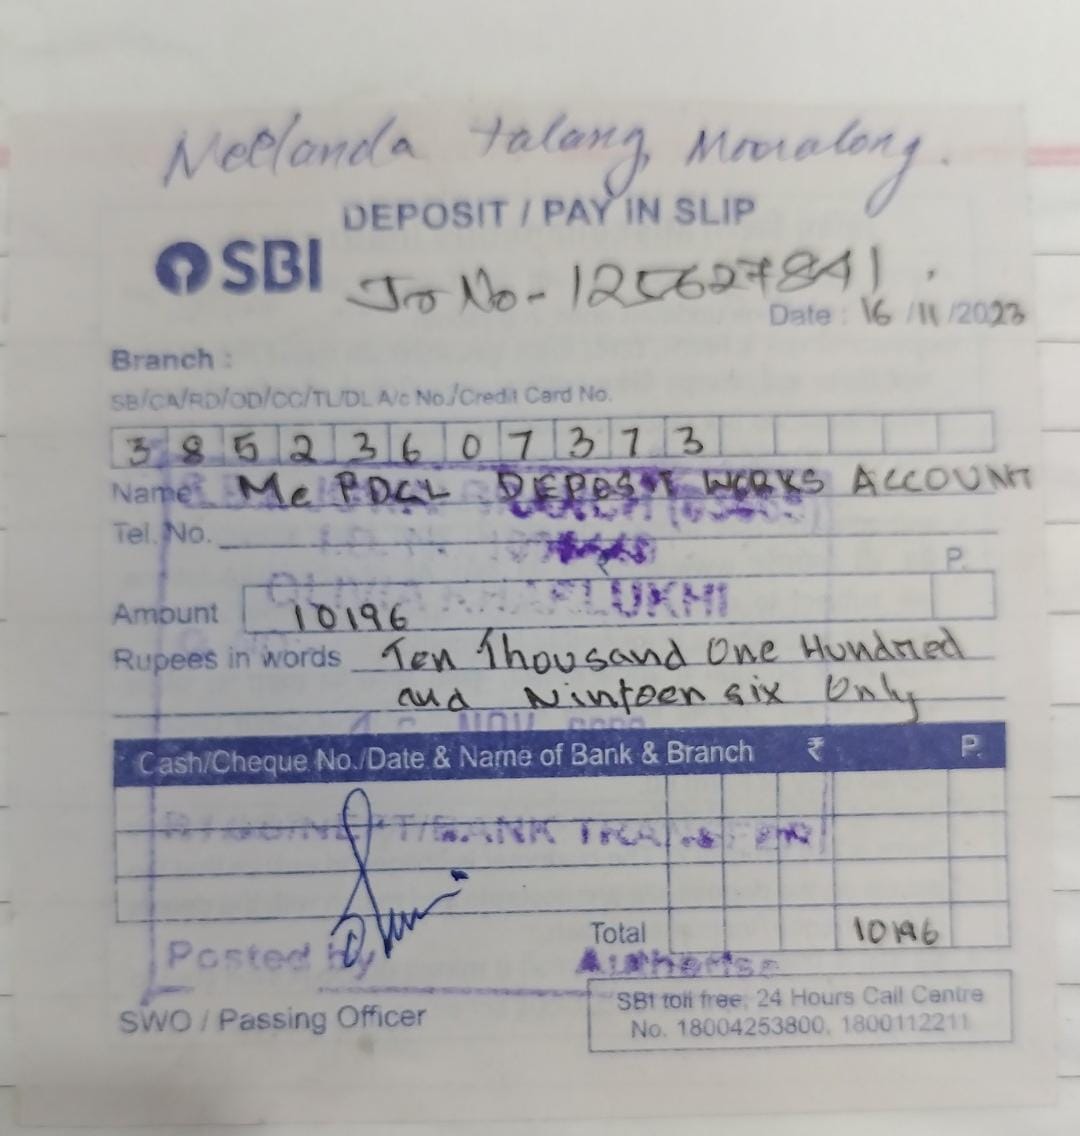 talang
DEPOSIT / PAY IN SLIP
SBI
No - 125627841.
Date : 16 /11 /2023
Branch :
SB/CA/RD/OD/CC/TL/DL A/c No./Credit Card No.
3 8 5 2 3 6 0 7 3 7 3
Name Me PDCL DEPOSIT WORKS ACCOUNT
Tel. No.
P.
LUKHI
Amount 10196
Rupees in words Ten Thousand One Hundred
and Ninteen six Only
NOV
Cash/Cheque No./Date & Name of Bank & Branch ₹ P.
T/BANK TRANSFER
Total 10196
Posted by
SWO / Passing Officer
SBI toll free, 24 Hours Call Centre
No. 18004253800, 1800112211